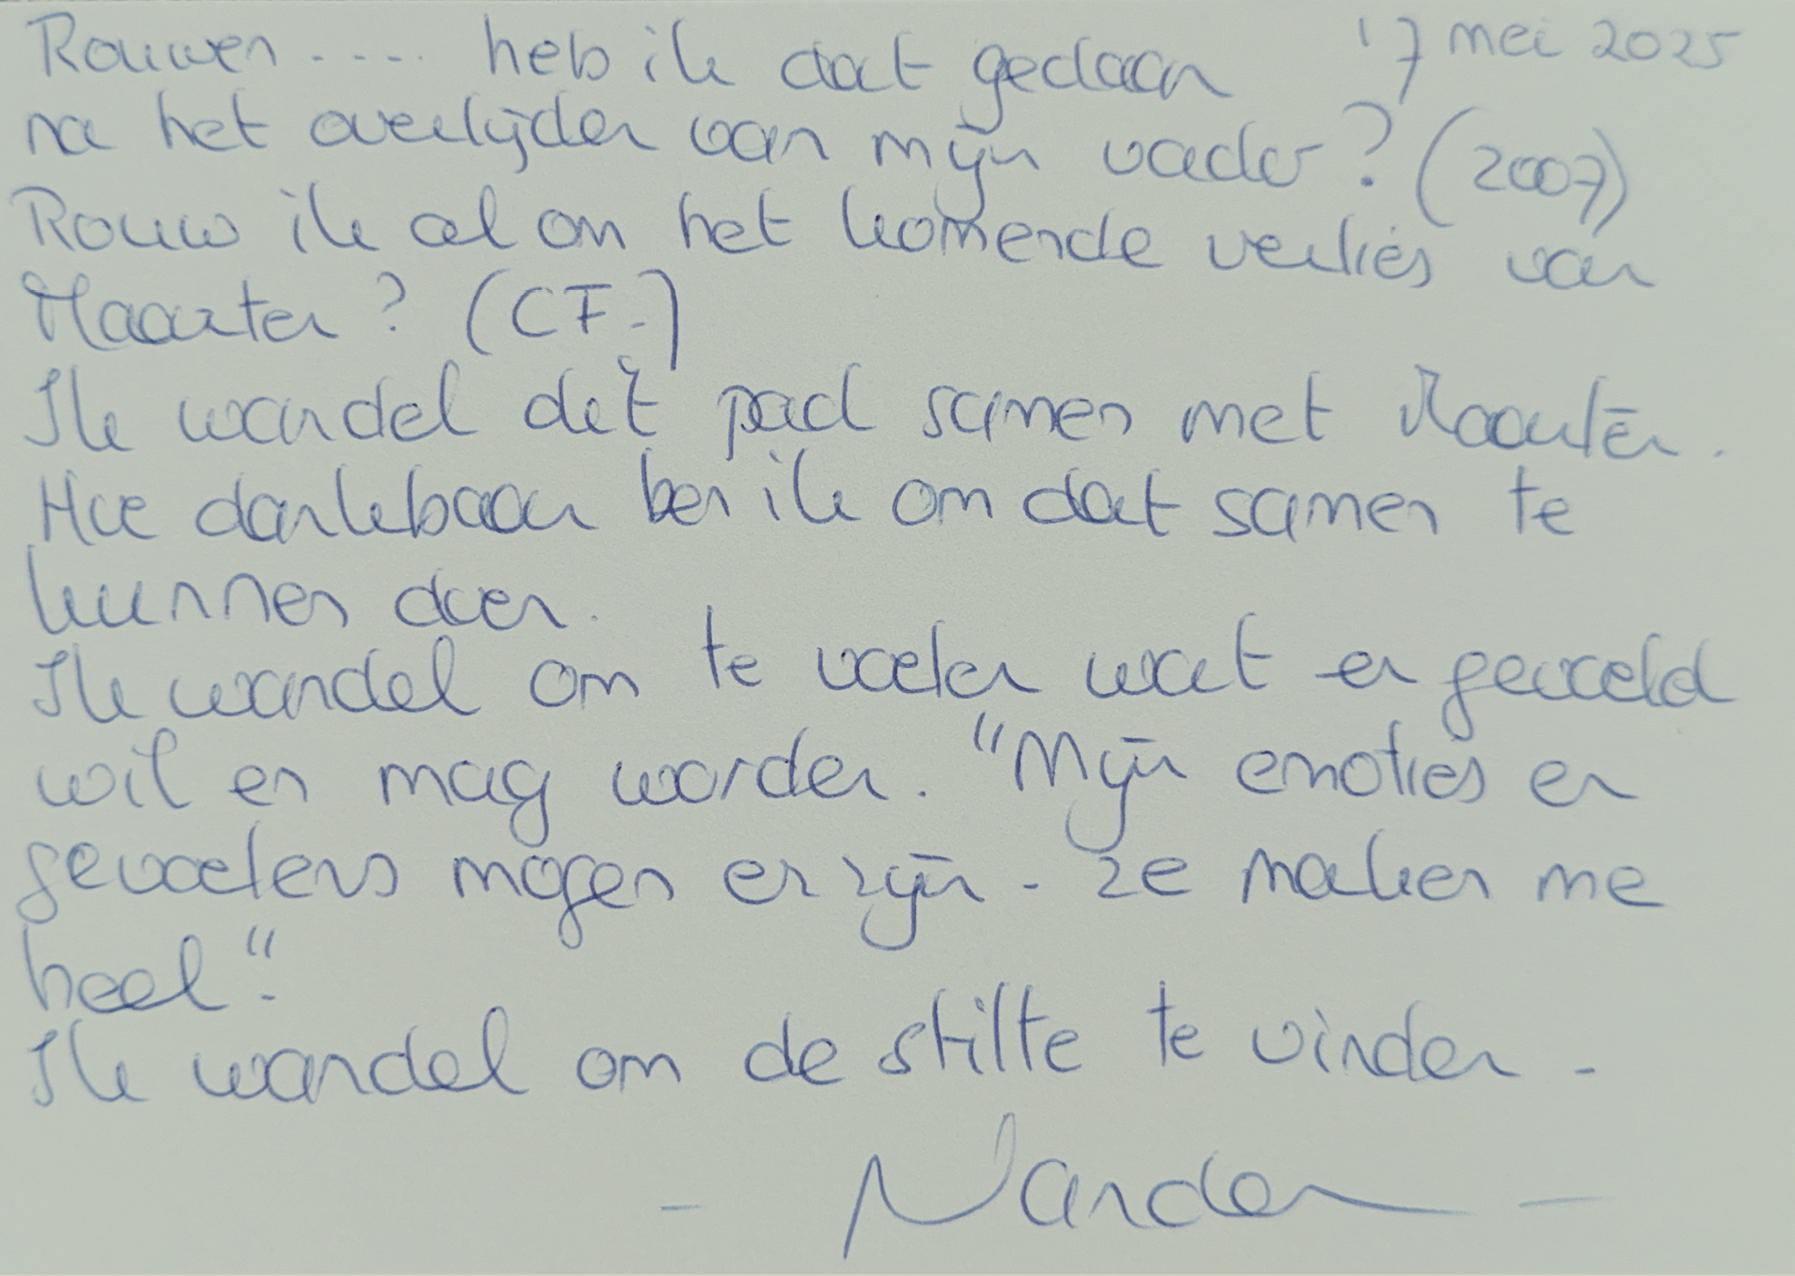 Rouwen .... heb ik dat gedaan 17 mei 2025
na het overlijden van mijn vader? (2007)
Rouw ik al om het komende verlies van
Maarten? (CF.)
Ik wandel dit pad samen met Maarten.
Hoe dankbaar ben ik om dat samen te
kunnen doen.
Ik wandel om te voelen wat er gevoeld
wil en mag worden. "Mijn emoties en
gevoelens mogen er zijn - ze maken me
heel".
Ik wandel om de stilte te vinden.